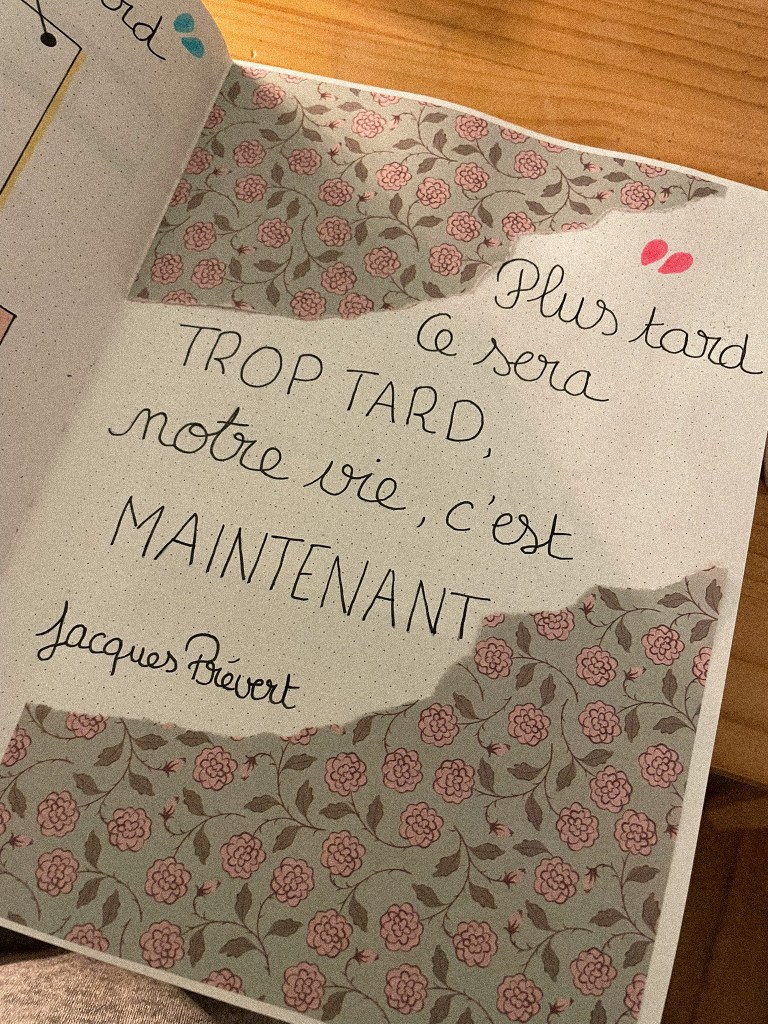 ord
Plus tard
Ce sera
TROP TARD,
notre vie, c'est
MAINTENANT
Jacques Prévert